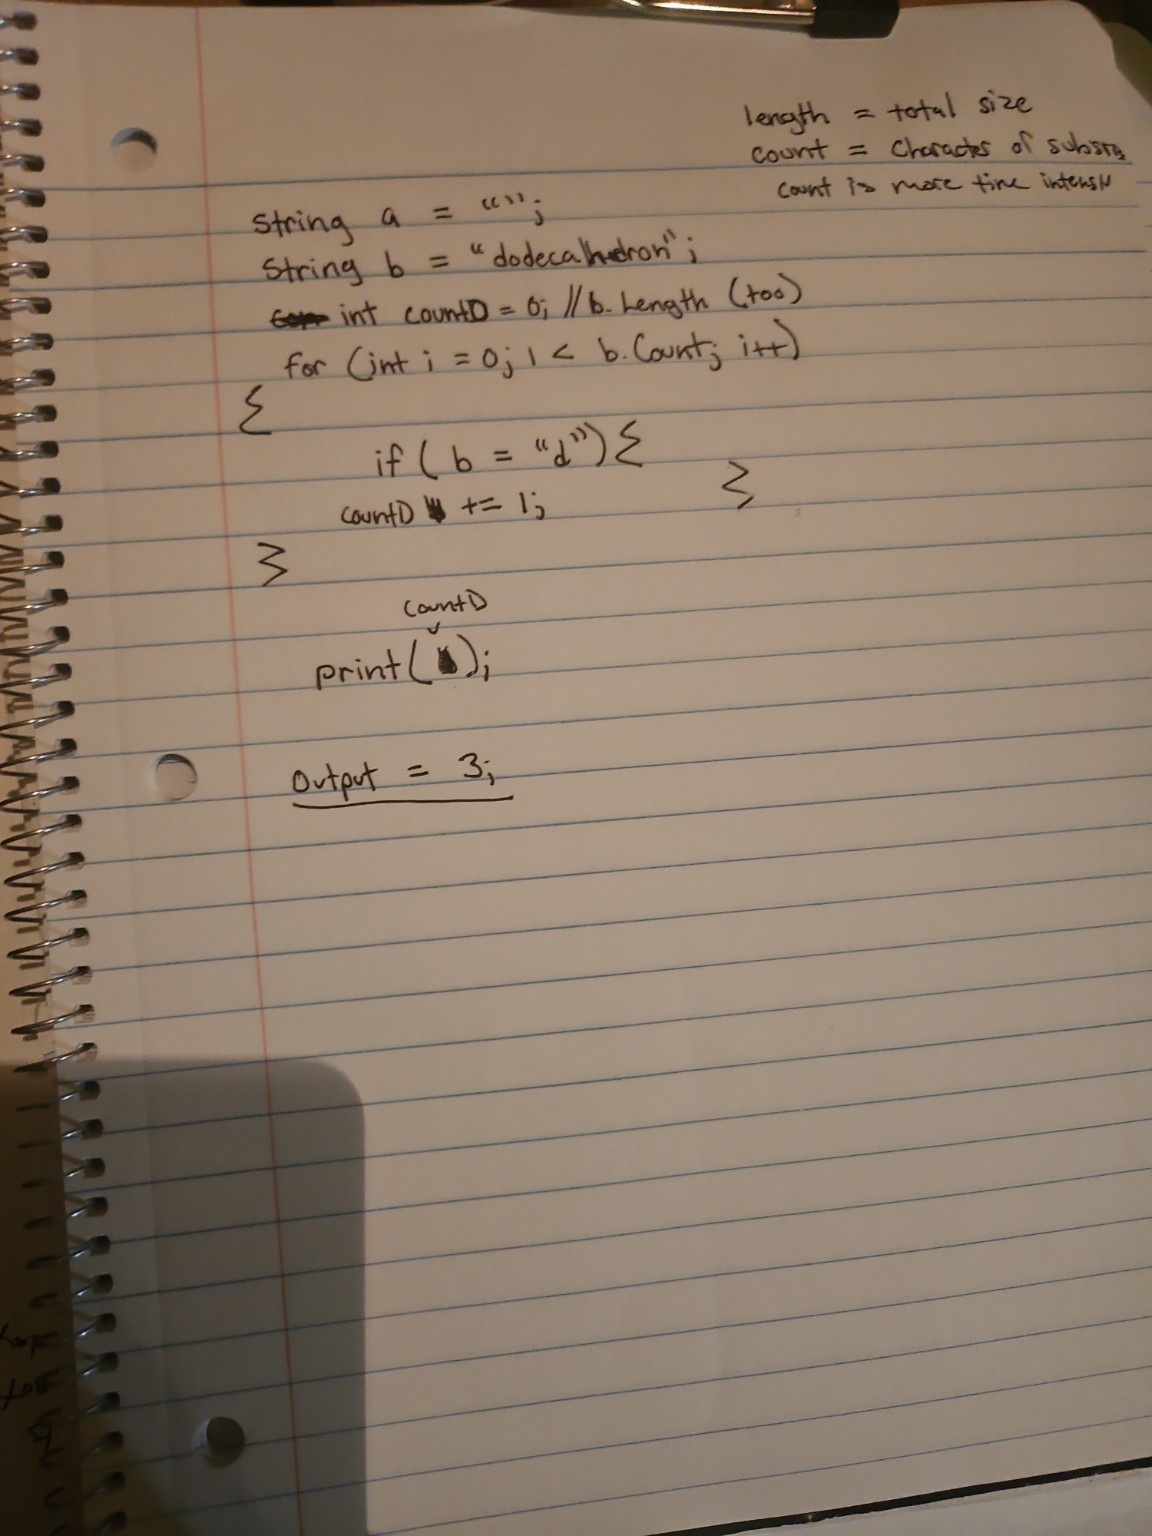 length = total size
count = character of substrg
count is more time intensiv
string a = "";
String b = "dodecahedron";
int countD = 0; // b. Length (too)
for (int i = 0; i < b. Count; i++)
{
if ( b = "d") {
countD += 1; }
}
countD
print( );
Output = 3;